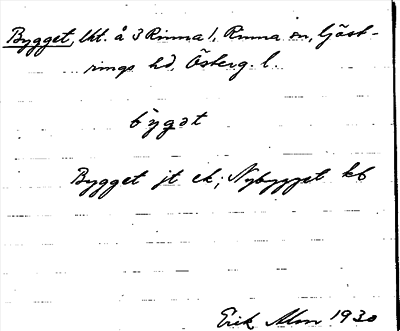 Bygget, lht. å 3 Rinna 1, Rinna sn, Göst-
rings hd, Österg. l.
býgət
Bygget jt ek; Nybygget kb
Erik Alm 1930